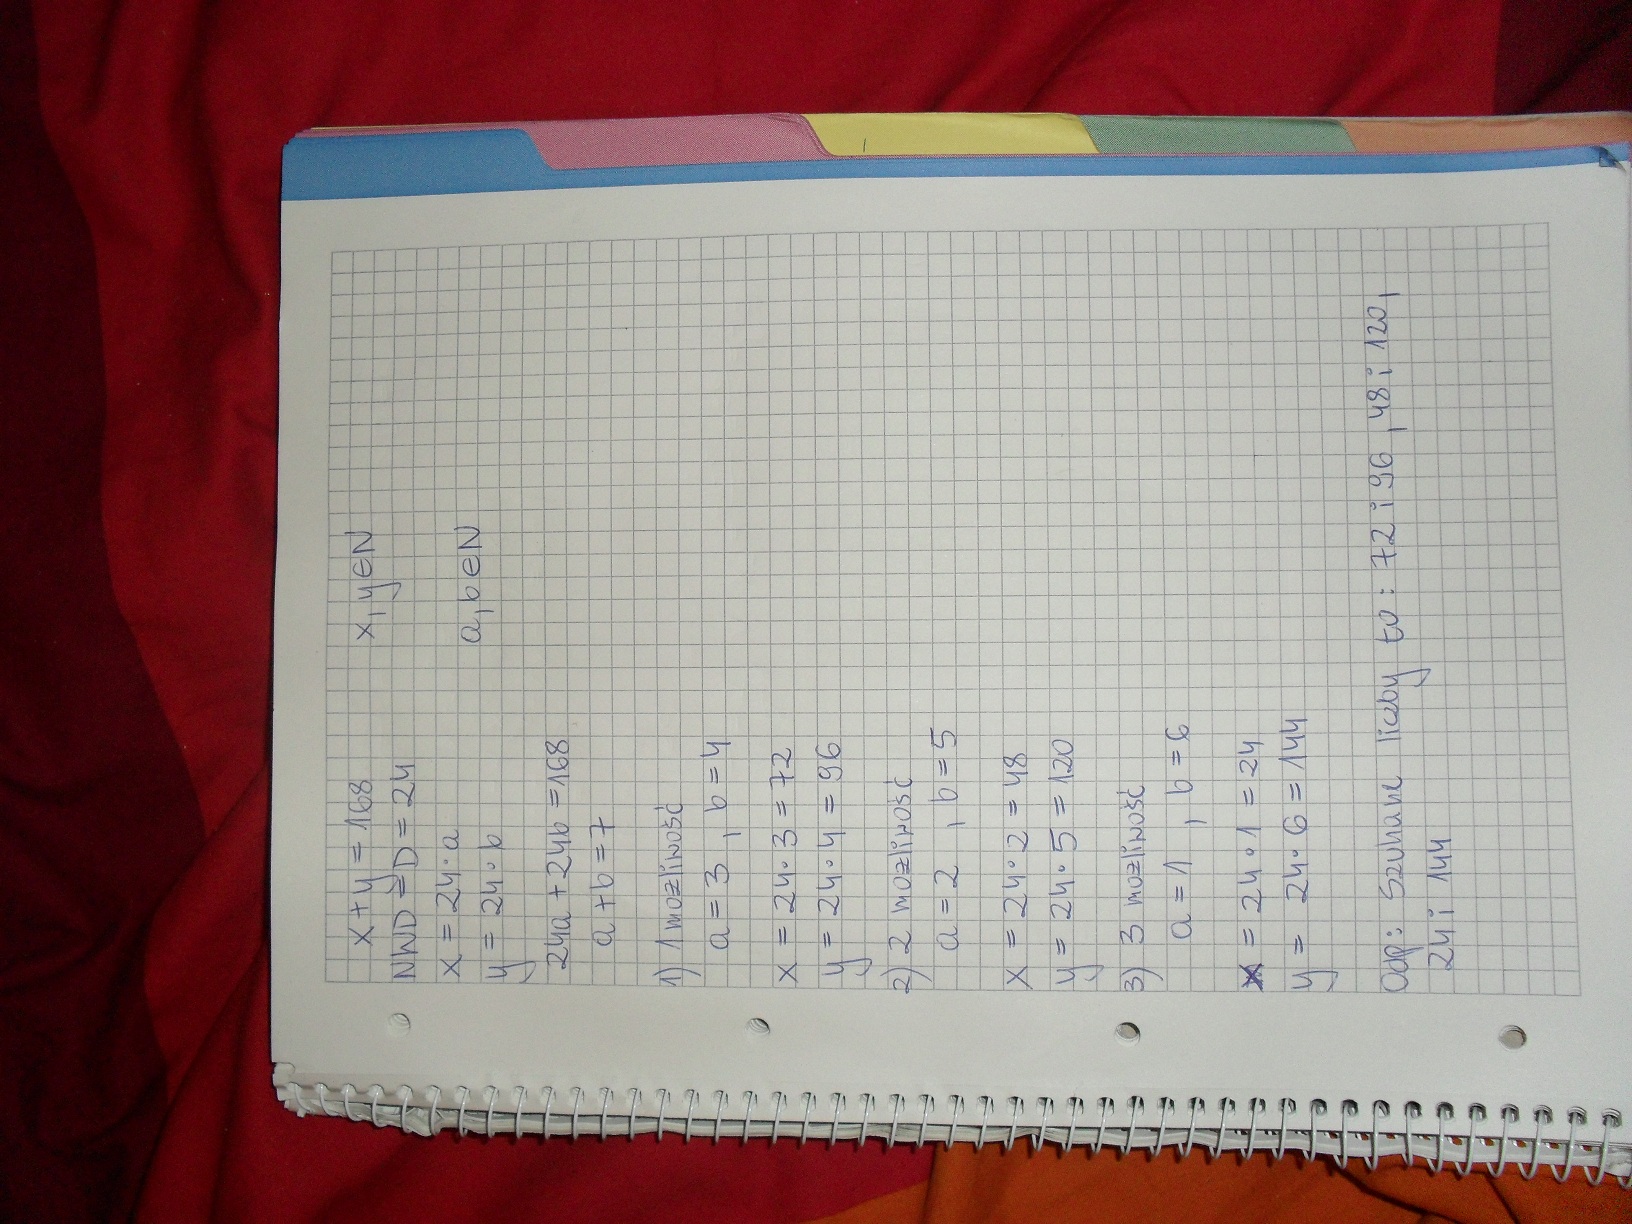 x+y=168 x,y∈N
NWD = D = 24
x = 24·a
y = 24·b a,b∈N
24a + 24b = 168
a+b=7
1) 1 możliwość
a=3, b=4
x = 24·3=72
y = 24·4=96
2) 2 możliwość
a=2, b=5
x = 24·2=48
y = 24·5=120
3) 3 możliwość
a=1, b=6
x = 24·1=24
y = 24·6=144
Odp: Szukane liczby to: 72 i 96, 48 i 120,
24 i 144